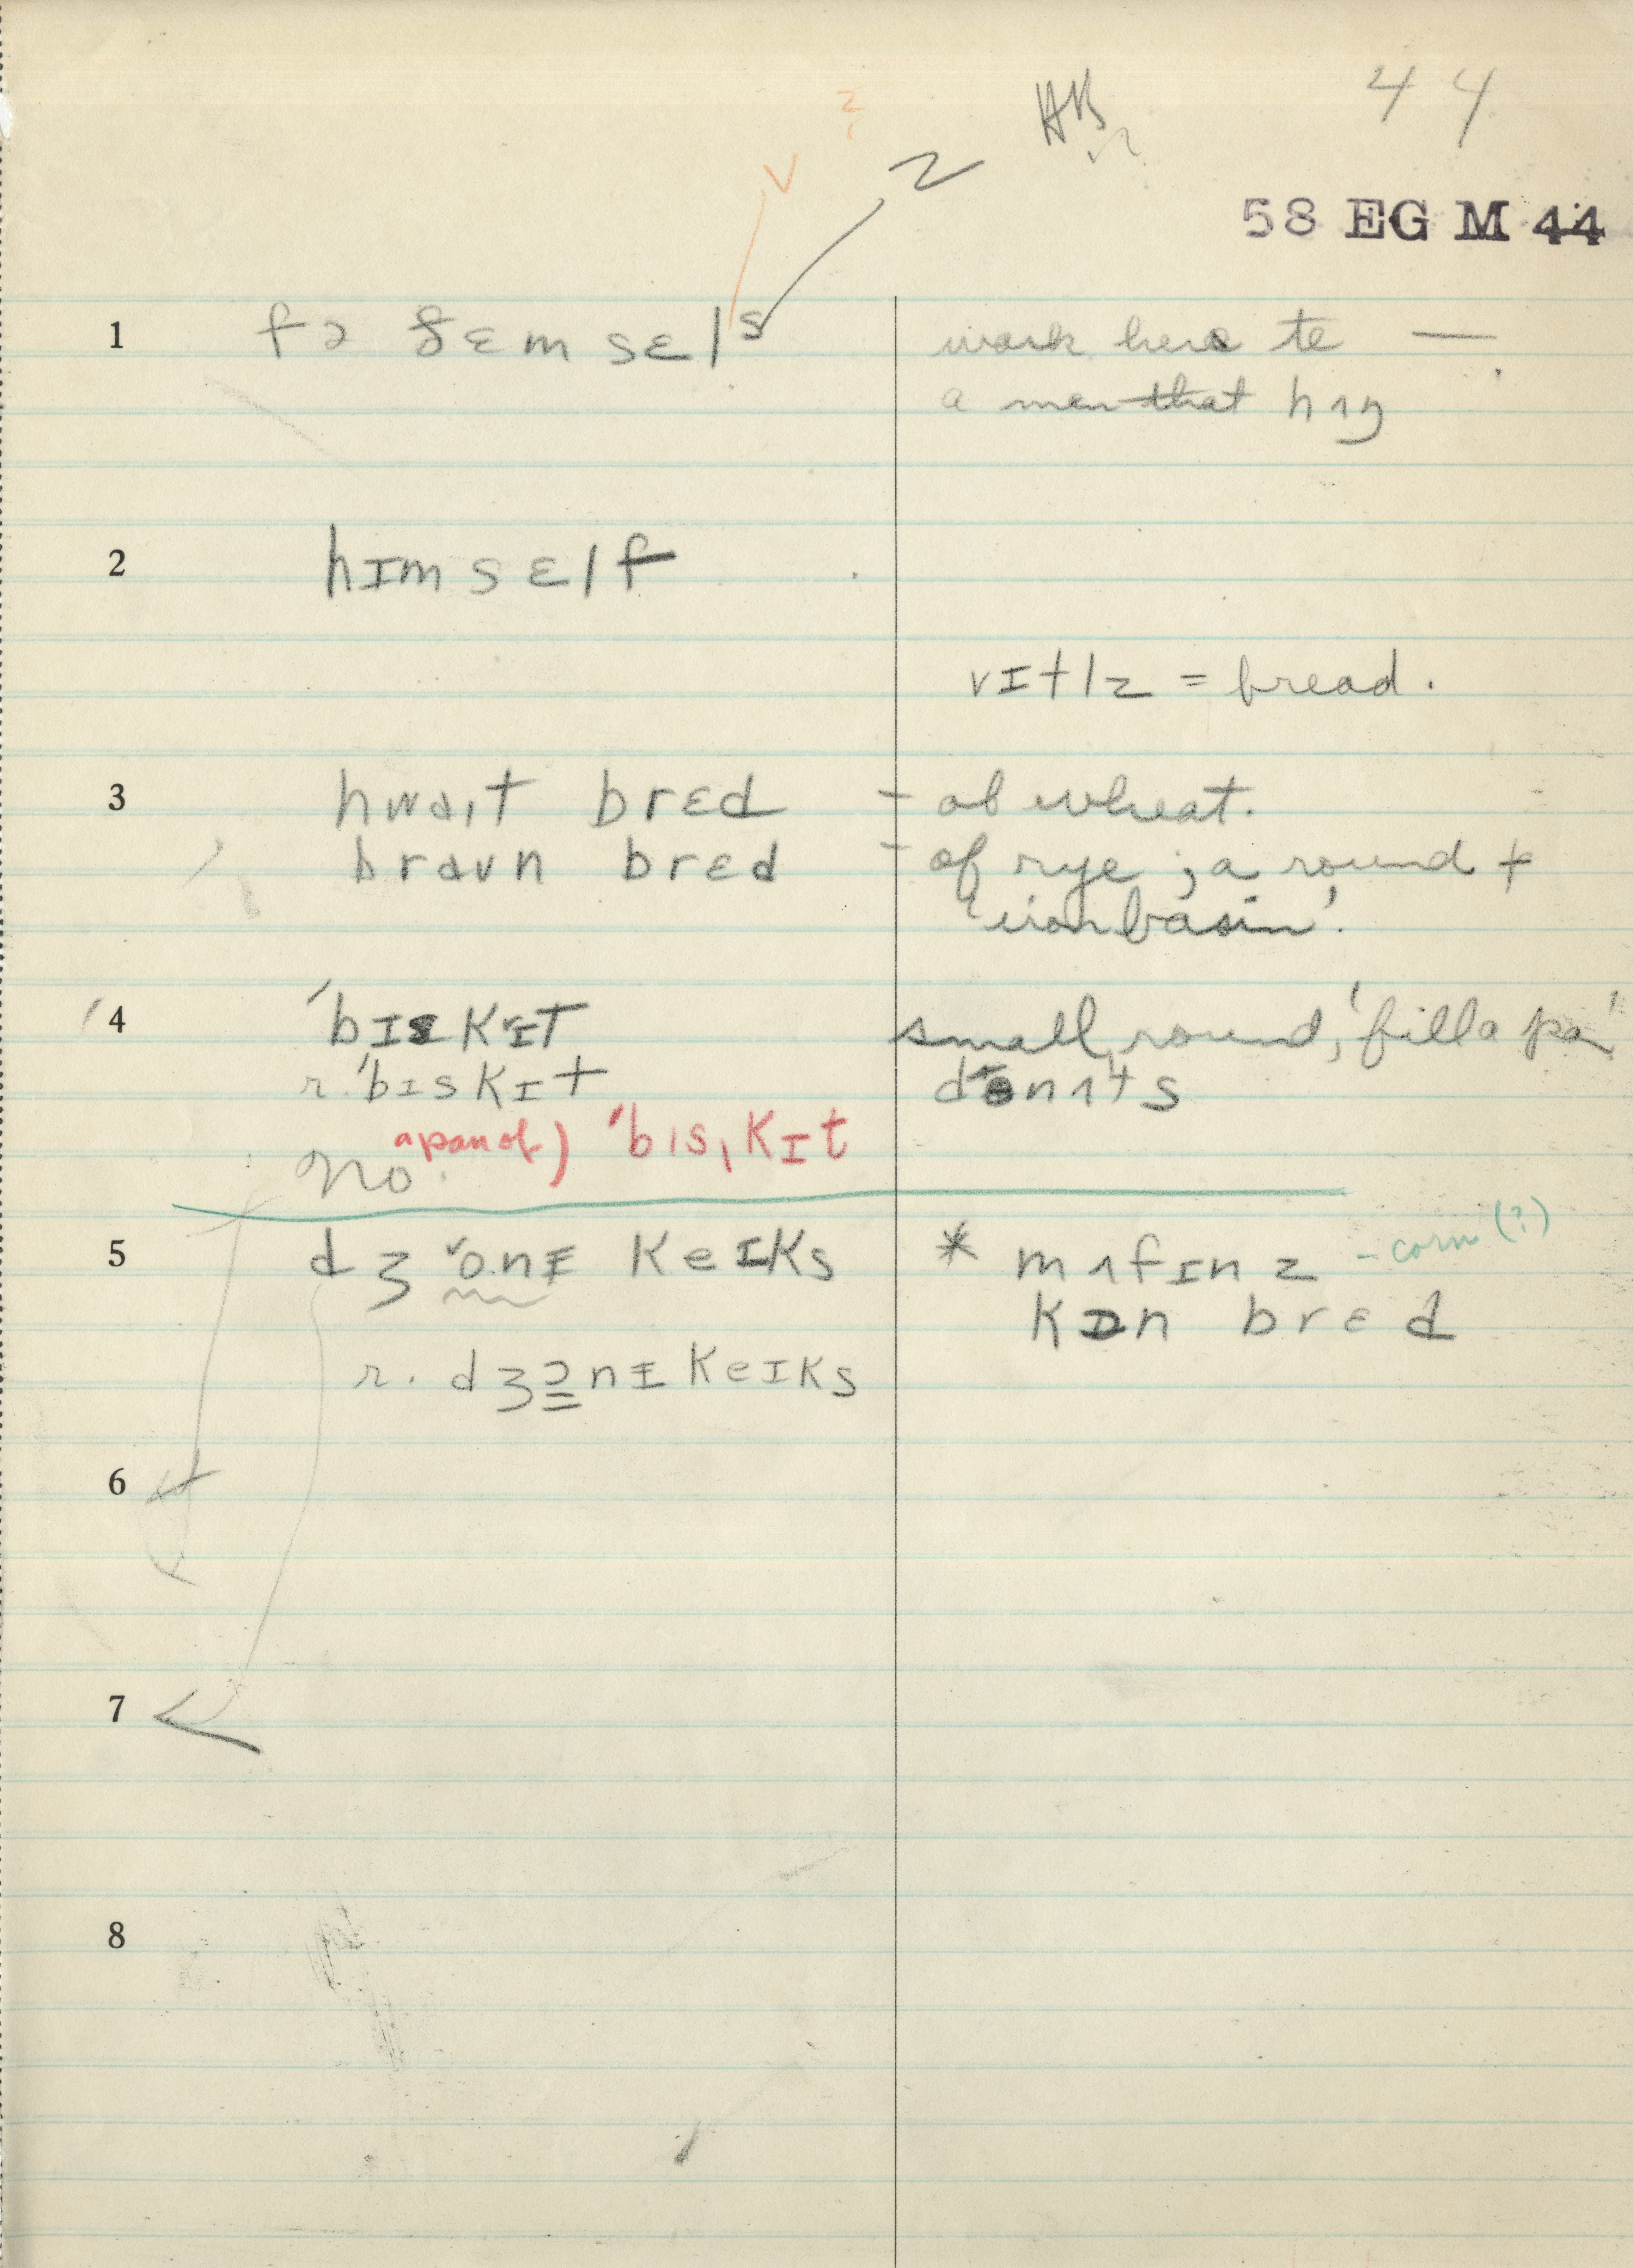 44
HB
v ? z
58 EG M 44
1 fə ðɛm sɛls work here to —
a man that hʌŋ
2 hɪmsɛlf
vɪtlz = bread.
3 hwaɪt brɛd - of wheat.
braun brɛd - of rye ; a round +
'iron basin'.
4 ˈbɪskɪt small, round, 'fill a pan'
r. ˈbɪskɪt donʌts
a pan of) ˈbɪsˌkɪt
No.
5 dʒonɪ keɪks * mʌfɪnz - corn (?)
kɒn brɛd
r. dʒɔnɪ keɪks
6
7
8